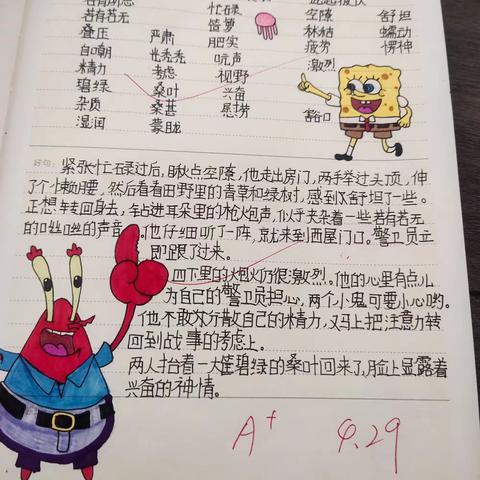 若有所思 忙碌
若有若无 笸箩 空隙 舒坦
叠压 严肃 肥实 林秸 蠕动
自嘲 光秃秃 吭声 疲劳 愣神
精力 考虑 视野 激烈
碧绿 桑叶 兴奋
杂质 桑葚 愚拐 豁口
湿润 蒙眬
好句:紧张忙碌过后,瞅点空隙,他走出房门,两手举过头顶,伸
了个小懒腰,然后看看田野里的青草和绿树,感到大舒坦了一些。
正想转回身去,钻进耳朵里的枪炮声,似乎夹杂着一些若有若无
的吵吵的声音。他仔细听了一阵,就来到西屋门口。警卫员立
即跟了过来。
四下里的炮火仍很激烈。他的心里有点儿
为自己的警卫员担心,两个小鬼可要小心哟。
他不敢太分散自己的精力,又马上把注意力转
回到战事的考虑上。
两人抬着一大筐碧绿的桑叶回来了,脸上显露着
兴奋的神情。
A+ 4.29